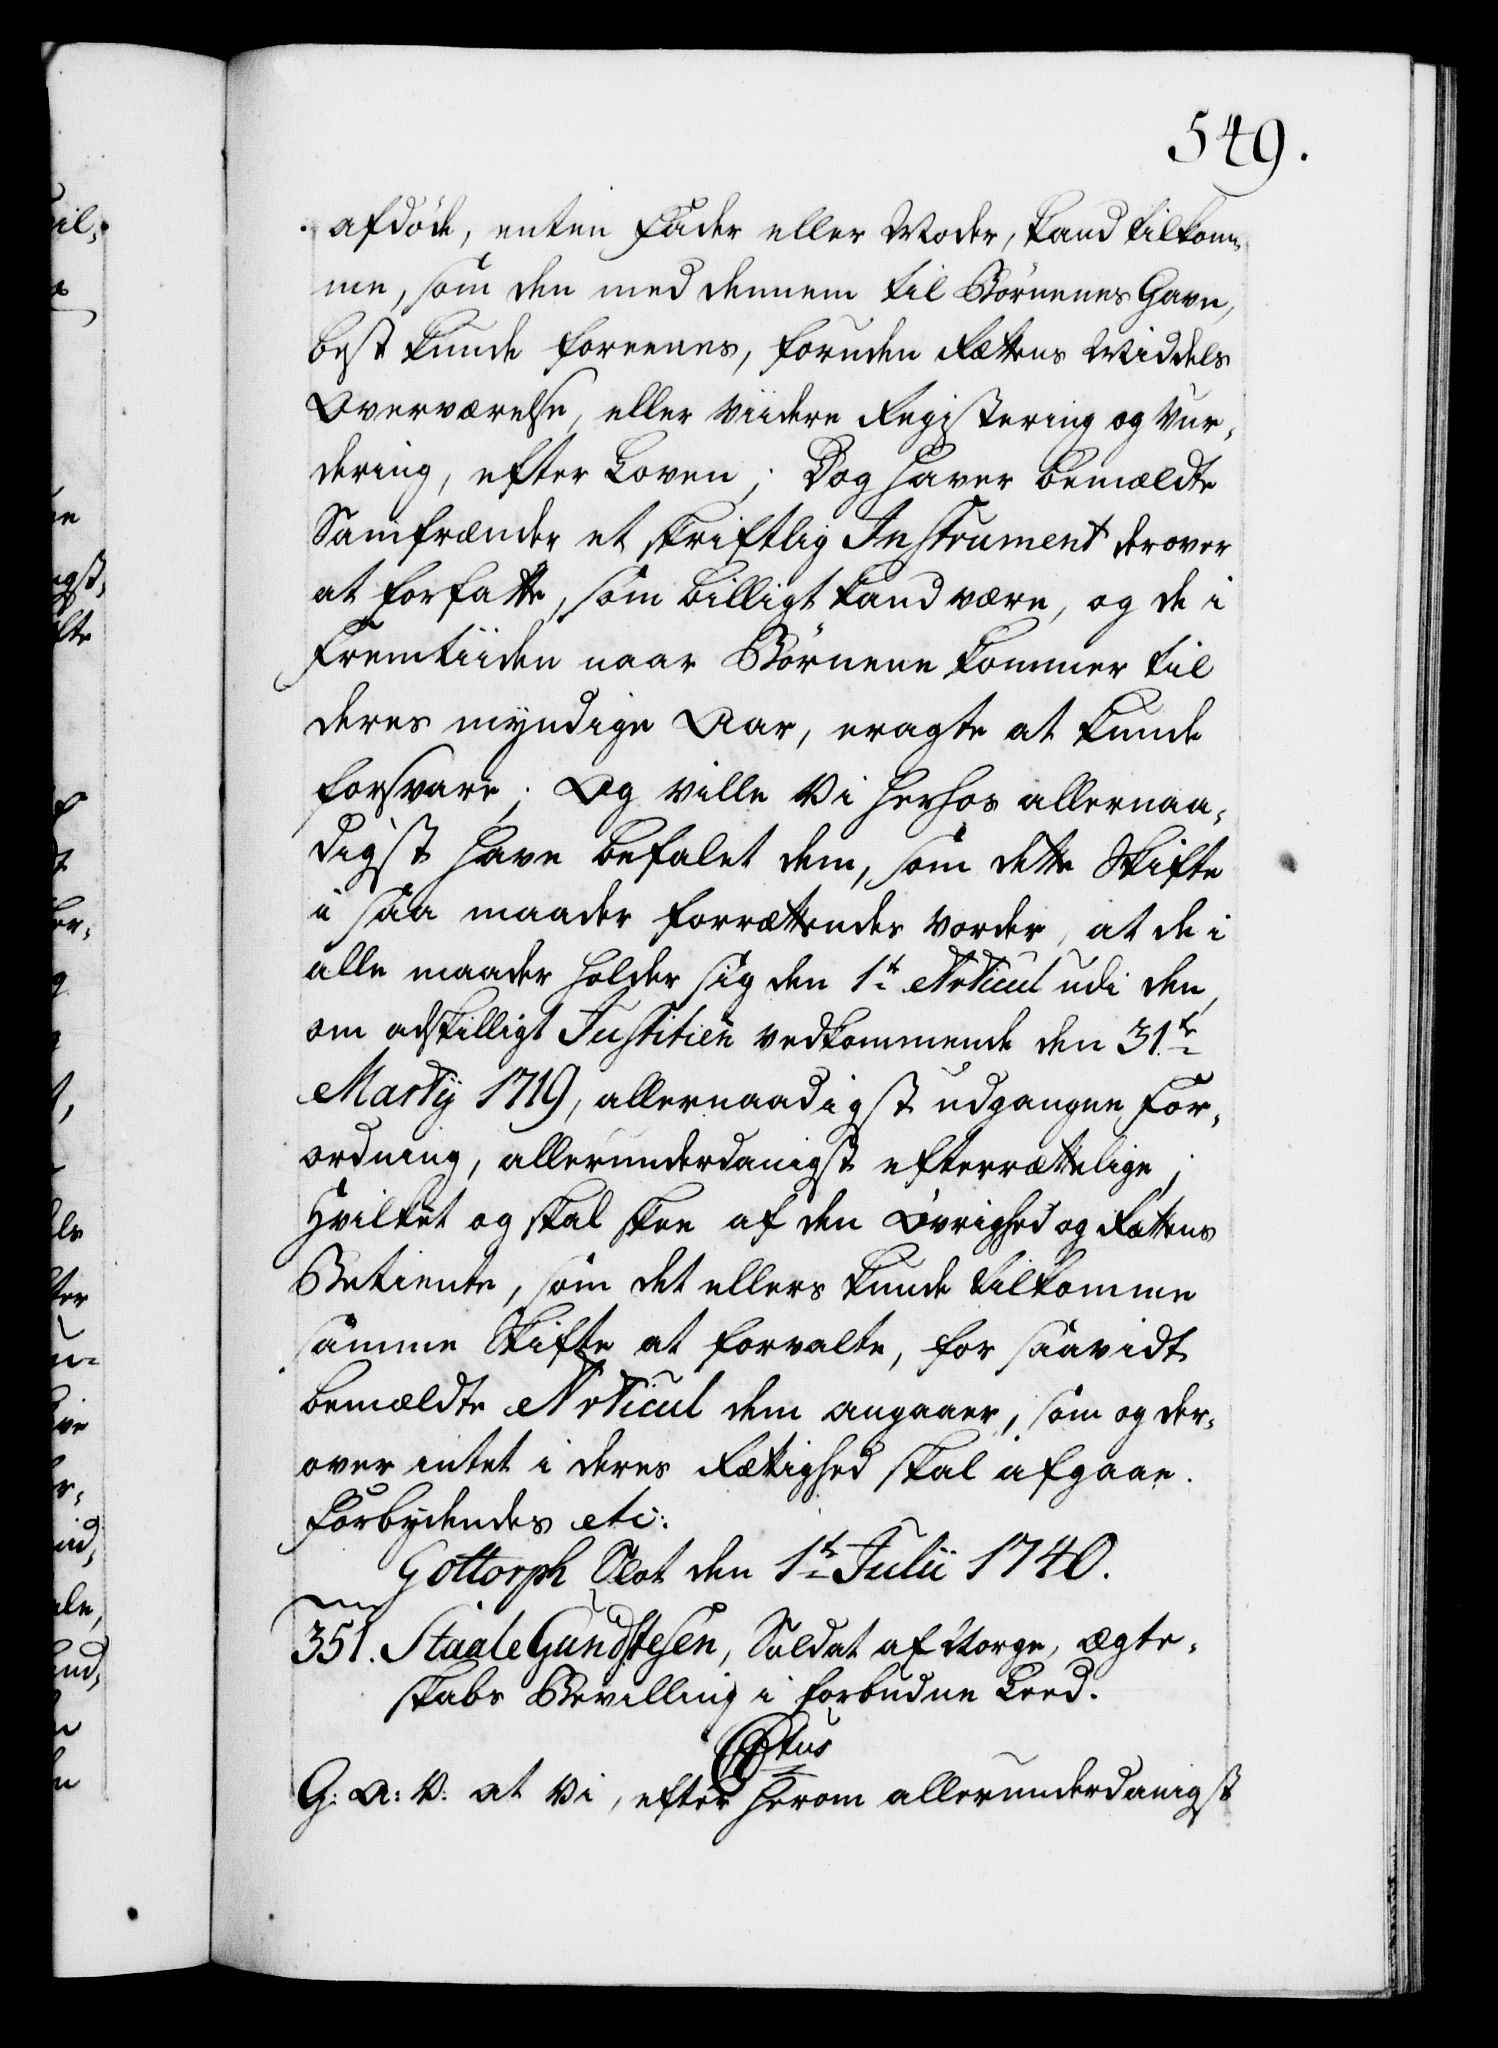 549.
afdöde, enten Fader eller Moder, kand tilkom¬
me, som den med dennem til Börnenes Gavn,
best kunde foreenes, foruden Rættens Middels
Overværelse, eller viidere Registering og Vur¬
dering, efter Loven; Dog haver bemældte
Samfrænder et skriftlig Instrument derover
at forfatte, som billigt kand være, og de i
Fremtiiden naar Börnene kommer til
deres myndige Aar, eragte at kunde
forsvare; Og ville Vi herhos allernaa¬
digst have befalet dem, som dette Skifte
i saa maader forrættendes vorder, at de i
alle maader holder sig den 1te Articul udi den,
om adskilligt Justitien vedkommende den 31te
Martij 1719, allernaadigst udgangne For¬
ordning, allerunderdanigst efterrættelige;
Hvilket og skal skee af den Øvrighed og Rettens
Betiente, som det ellers kunde tilkomme
samme Skifte at forvalte, for saavidt
bemældte Articul dem angaaer, som og der¬
over intet i deres Rættighed skal afgaae.
Forbydendes etc:
Gottorph Slot den 1te Julii 1740.
351. Staale Gundstesen, Soldat af Norge, ægte¬
skabs Bevilling i forbudne Leed.
C6tus
G: A: V: at Vi, efter herom allerunderdanigst